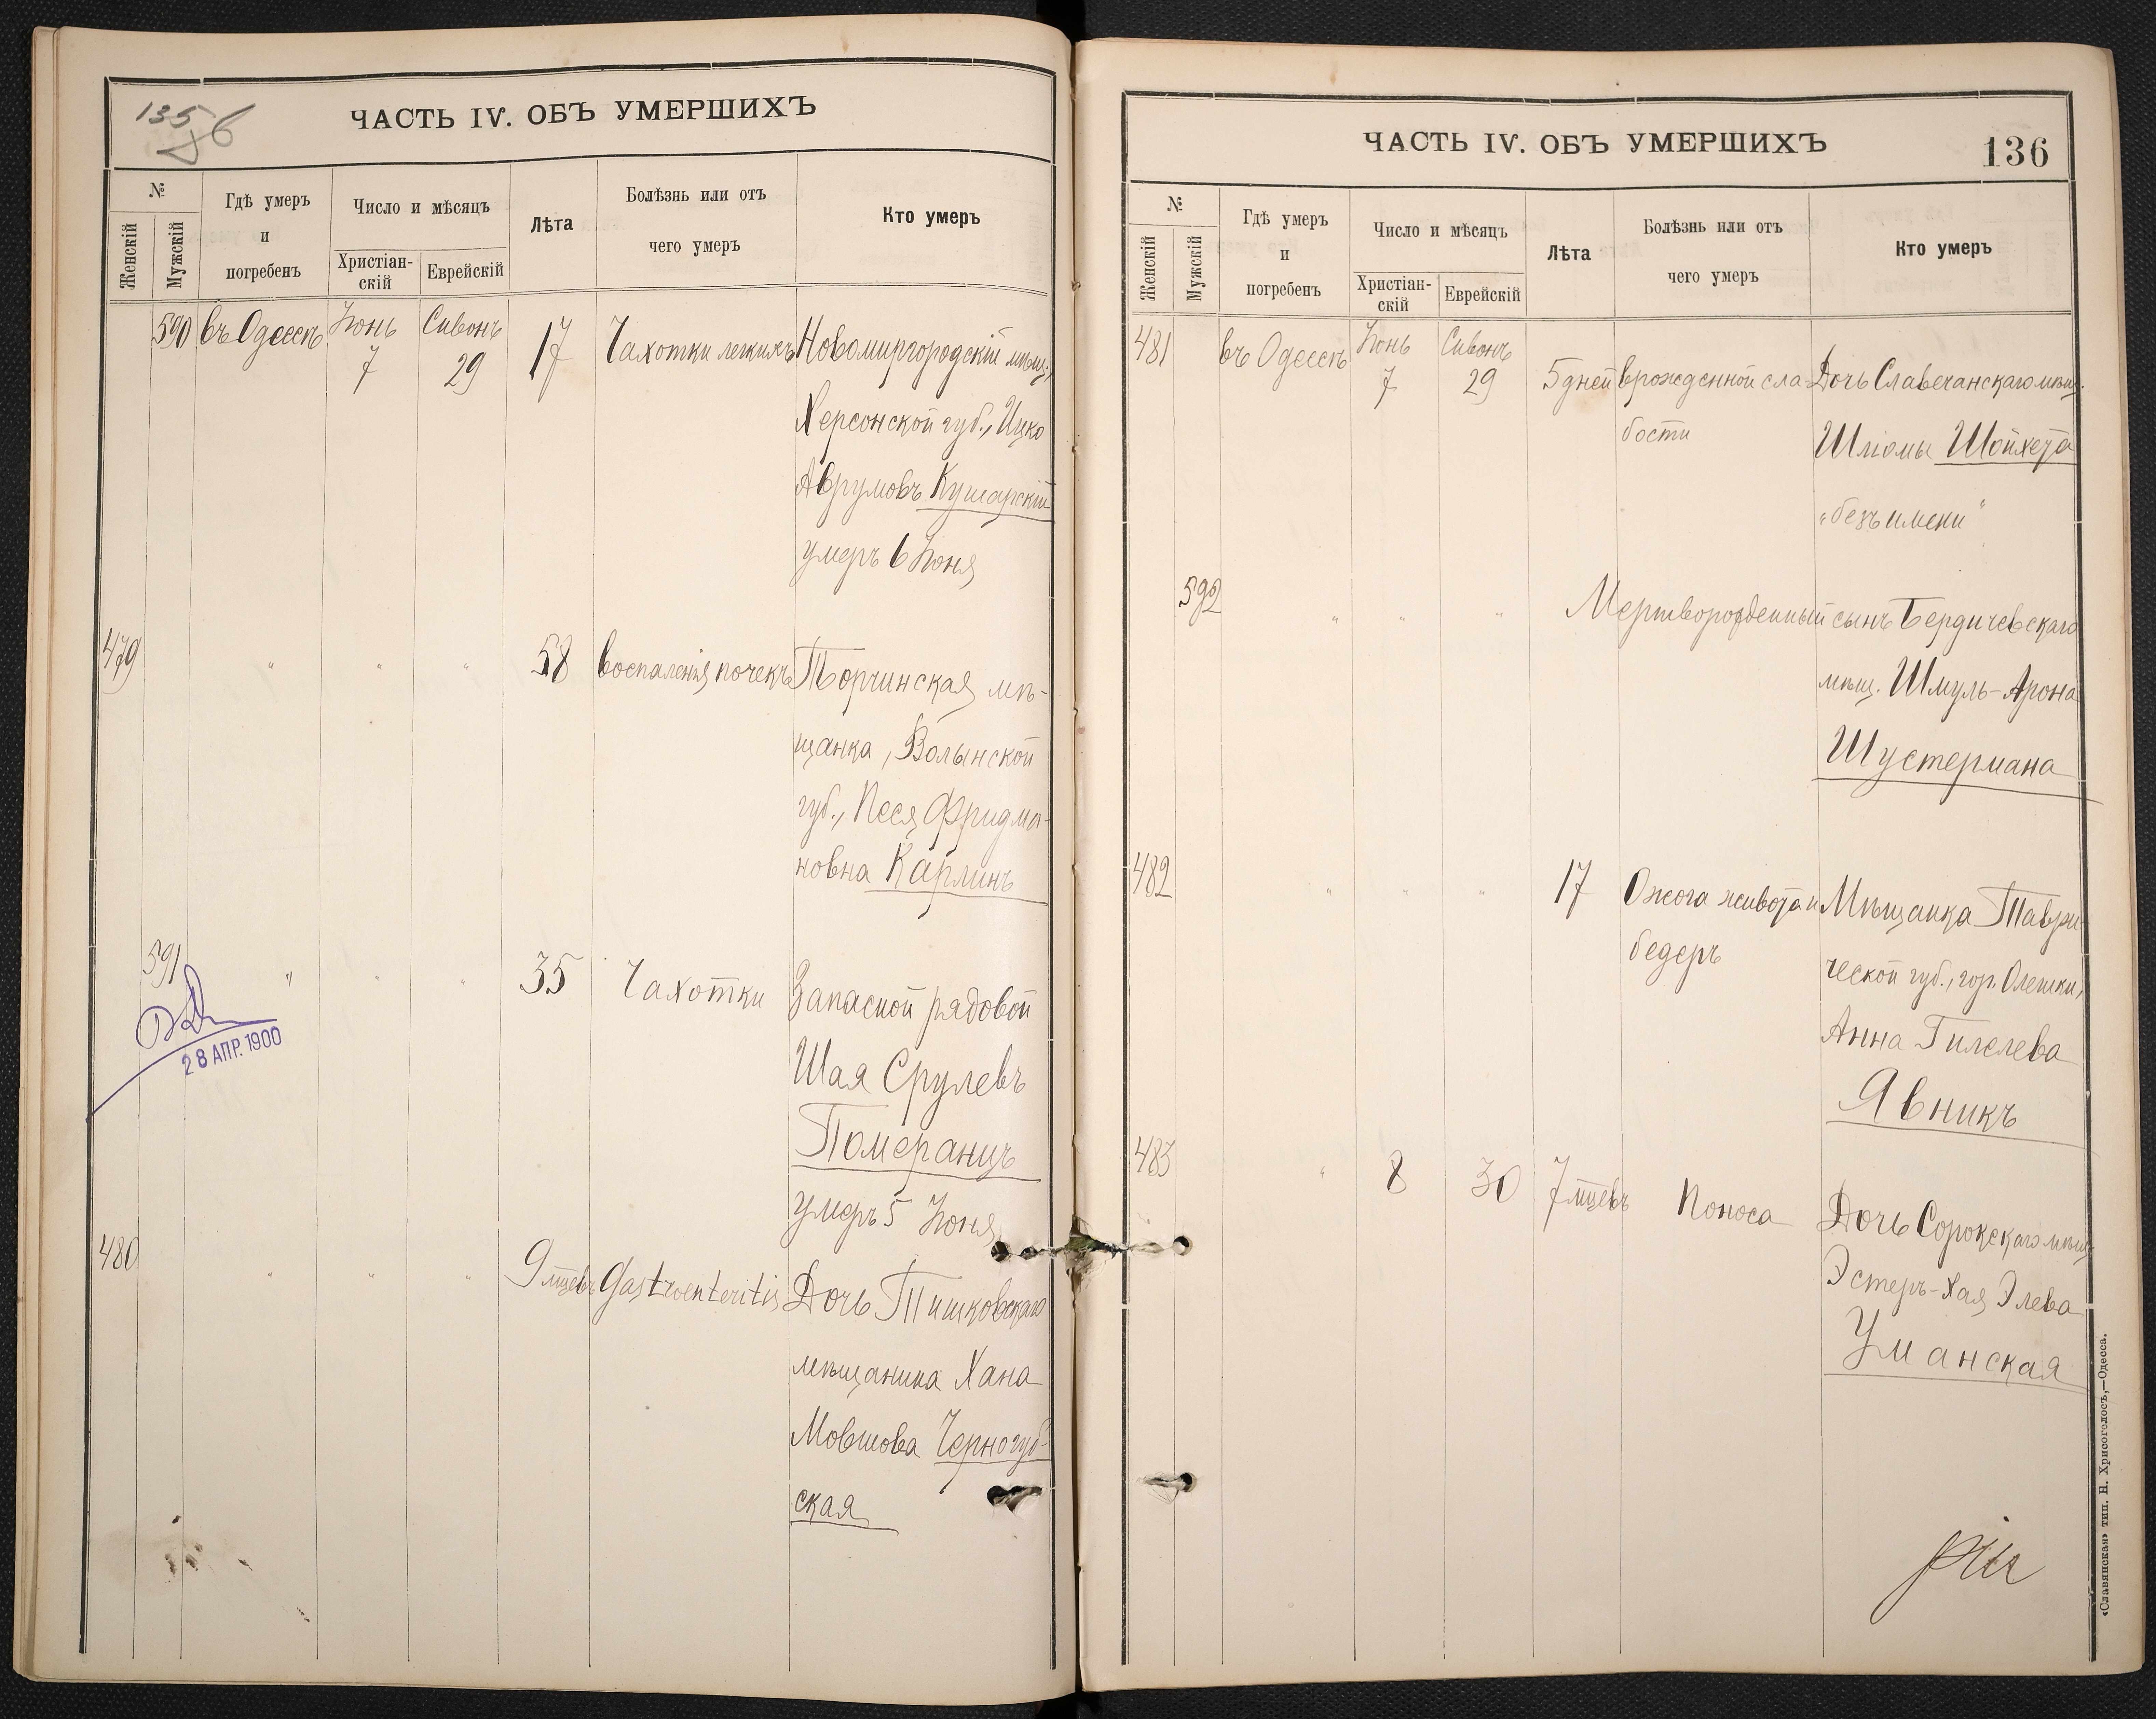 135 об
ЧАСТЬ IV. ОБЪ УМЕРШИХЪ
№
Женскій
Мужскій
Гдѣ умеръ
и
погребенъ
Число и мѣсяцъ
Христіан-
скій
Еврейскій
Лѣта
Болѣзнь или отъ
чего умеръ
Кто умеръ
590 въ Одессѣ Іюнь 7 Сивонъ 29 17 Чахотки легкихъ Новомиргородскій мѣщ.,
Херсонской губ., Ицко
Аврумовъ Кушарскій
умеръ 6 Іюня
479 " " " 58 воспаленія почекъ Торчинская мѣ-
щанка, Волынской
губ., Песя Фридма-
новна Карлинъ
591 " " " 35 Чахотки Запасной рядовой
Шая Срулевъ
Померанцъ
умеръ 5 Іюня
28 АПР. 1900
480 " " " 9 мцевъ Gastroenteritis Дочь Тишковскаго
мѣщанина Хана
Мовшова Черногуб-
ская
ЧАСТЬ IV. ОБЪ УМЕРШИХЪ
136
№
Женскій
Мужскій
Гдѣ умеръ
и
погребенъ
Число и мѣсяцъ
Христіан-
скій
Еврейскій
Лѣта
Болѣзнь или отъ
чего умеръ
Кто умеръ
481 въ Одессѣ Іюнь 7 Сивонъ 29 5 дней врожденной сла- Дочь Славечанскаго мѣщ.
бости Шліомы Шойхета
„безъ имени“
592 " " " Мертворожденный сынъ Бердичевскаго
мѣщ. Шмуль-Арона
Шустермана
482 " " " 17 Ожога живота и Мѣщанка Таври-
бедеръ ческой губ., гор. Олешки,
Анна Гилелева
Явникъ
483 " 8 30 7 мцевъ Поноса Дочь Сорокскаго мѣщ.
Эстеръ-Хая Элева
Уманская
«Славянская» тип. Н. Хрисогелосъ,—Одесса.